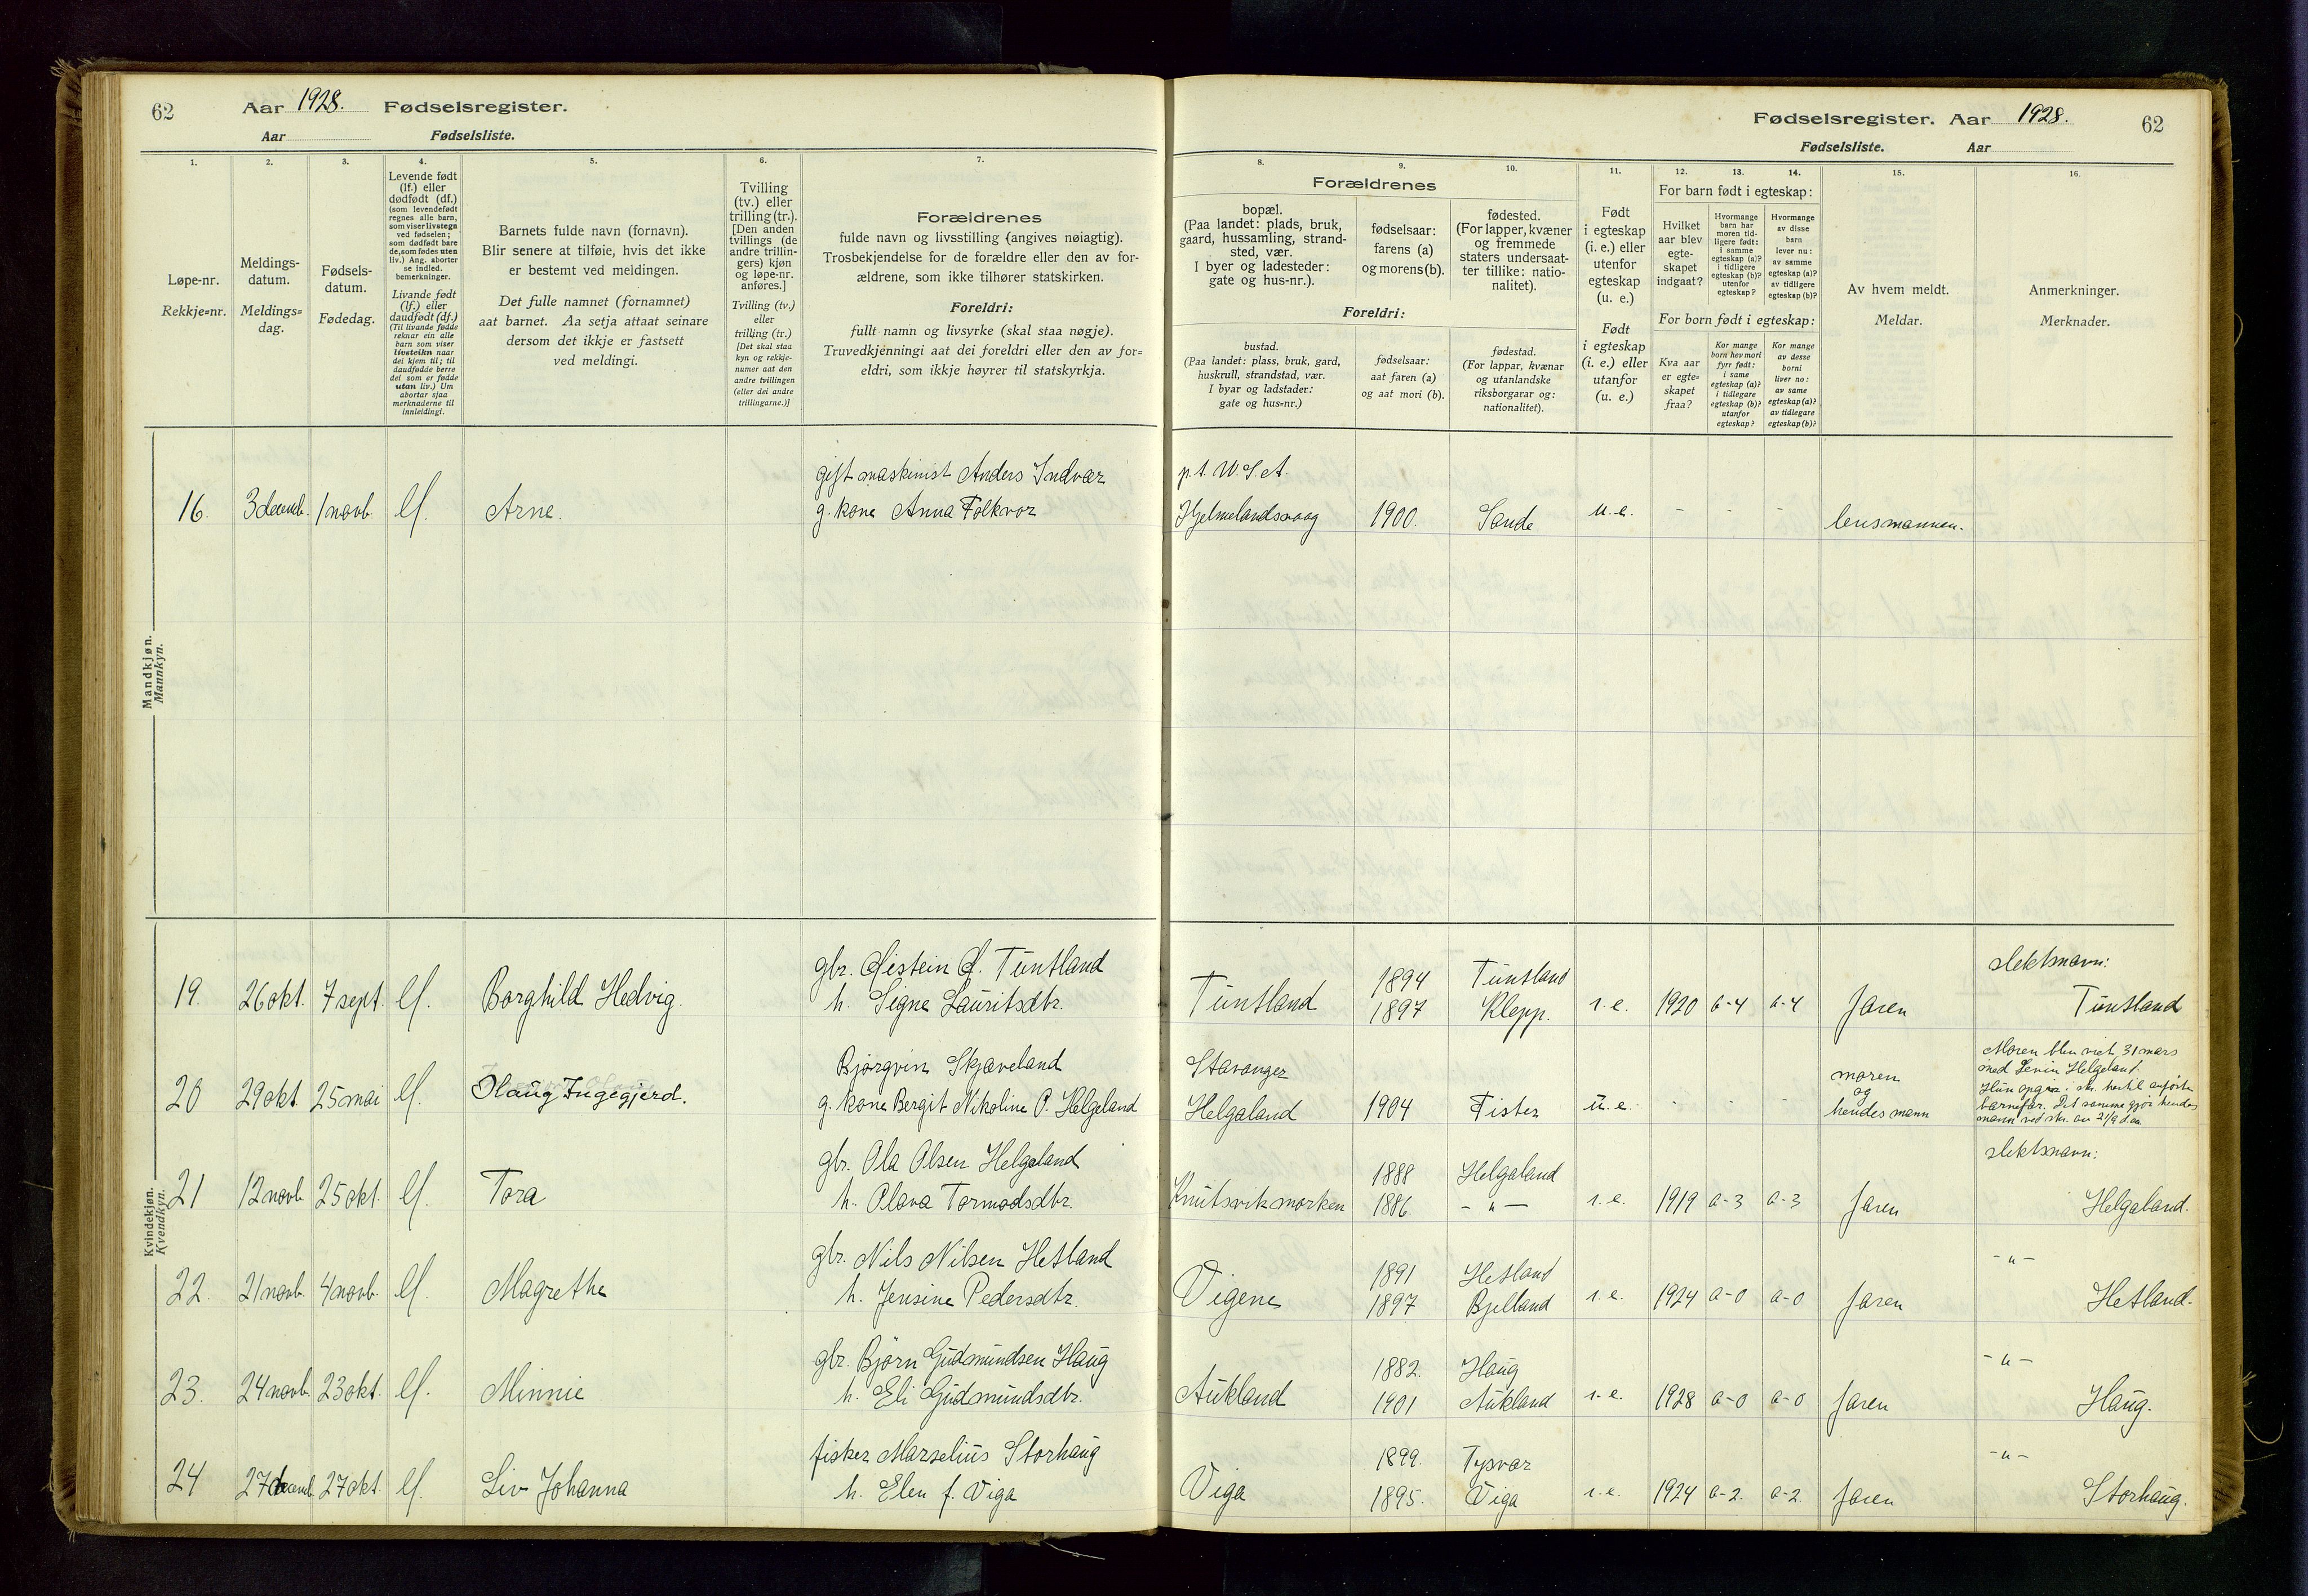 62 Aar 1928. Fødselsregister.
Aar Fødselsliste.
Fødselsregister. Aar 1928. 62
Fødselsliste. Aar
1. 2. 3. 4. 5. 6. 7.
Løpe-nr.
Rekkje=nr.
Meldings-
datum.
Meldings=
dag.
Fødsels-
datum.
Fødedag.
Levende født
(lf.) eller
dødfødt (df.)
(som levendefødt
regnes alle barn,
som viser livstegn
ved fødselen;
som dødfødt bare
de, som fødes uten
liv.) Ang. aborter
se indled.
bemerkninger.
Livande født
(lf.) eller
daudfødt (df.)
(Til livande fødde
reknar ein alle
barn som viser
livsteikn naar
dei kjem til; til
daudfødde berre
dei som er fødde
utan liv.) Um
abortar sjaa
merknaderne til
innleidingi.
Barnets fulde navn (fornavn).
Blir senere at tilføie, hvis det ikke
er bestemt ved meldingen.
Det fulle namnet (fornamnet)
aat barnet. Aa setja attaat seinare
dersom det ikkje er fastsett
ved meldingi.
Tvilling
(tv.) eller
trilling (tr.).
[Den anden
tvillings (de
andre trillin-
gers) kjøn
og løpe-nr.
anføres.]
Tvilling (tv.)
eller
trilling (tr.)
[Det skal staa
kyn og rekkje-
numer aat den
andre tvillingen
(eller dei andre
trillingarne.)]
Forældrenes
fulde navn og livsstilling (angives nøiagtig).
Trosbekjendelse for de forældre eller den av for-
ældrene, som ikke tilhører statskirken.
Foreldri:
fullt namn og livsyrke (skal staa nøgje).
Truvedkjenningi aat dei foreldri eller den av for=
eldri, som ikkje høyrer til statskyrkja.
8. 9. 10. 11. 12. 13. 14. 15. 16.
Forældrenes
bopæl.
(Paa landet: plads, bruk,
gaard, hussamling, strand-
sted, vær.
I byer og ladesteder:
gate og hus-nr.).
fødselsaar:
farens (a)
og morens (b).
fødested.
(For lapper, kvæner
og fremmede
staters undersaat-
ter tillike: natio-
nalitet).
Foreldri:
bustad.
(Paa landet: plass, bruk, gard,
huskrull, strandstad, vær.
I byar og ladstader:
gate og hus=nr.)
fødselsaar:
aat faren (a)
og aat mori (b).
fødestad.
(For lappar, kvænar
og utanlandske
riksborgarar og:
nationalitet).
Født
i egteskap
(i. e.) eller
utenfor
egteskap
(u. e.)
Født
i egteskap
(i. e.) eller
utanfor
(u. e.)
For barn født i egteskap:
Hvilket
aar blev
egte-
skapet
indgaat?
Hvormange
barn har
moren tid-
ligere født:
i samme
egteskap (a)?
i tidligere
egteskap (b)?
utenfor
egteskap?
Hvormange
av disse
barn
lever nu:
av samme
egteskap (a)?
av tidligere
egteskap (b)?
For born født i egteskap:
Kva aar
er egte=
skapet
fraa?
Kor mange
born hev mori
fyrr født:
i same
egteskap (a)?
i tidlegare
egteskap (b)?
utanfor
egteskap?
Kor mange
av desse
borni
liver no:
av same
egteskap (a)?
av tidlegare
egteskap (b)?
Av hvem meldt.
Meldar.
Anmerkninger.
Merknader.
Mandkjøn.
Mannkyn.
gift maskinist Anders Indvær p.t. U.S.A.
16. 3 decemb. 1 novb. lf. Arne. g. kone Anna Folkvor Hjelmelandsvaag 1900. Sande u.e. - - - lensmannen.
Kvindekjøn.
Kvendkyn.
gbr. Øistein Ø. Tuntland 1894 Tuntland slektsnavn:
19. 26 okt. 7 sept. lf. Borghild Hedvig. h. Signe Lauritsdtr. Tuntland 1897 Klepp. i.e. 1920 a-4 a-4 faren Tuntland
Bjørgvin Skjæveland Stavanger moren og hendes mann
20 29 okt. 25 mai lf. Olaug Ingegjerd. g. kone Bergit Nikoline P. Helgeland Helgaland 1904 Fister u.e. - - -
Moren blev viet 31 mars
med Levin Helgeland.
barnefar. Det samme gjør hendes
gbr. Ola Olsen Helgeland 1888 Helgaland slektsnavn:
21 12 novb. 25 okt. lf. Tora h. Olava Tormodsdtr. Knutsvikmorken 1886 -"- i.e. 1919 a-3 a-3 faren Helgaland.
gbr. Nils Nilsen Hetland 1891 Hetland -"-
22. 21 novb. 4 novb. lf. Magrethe h. Jensine Pedersdtr. Vigene 1897 Bjelland i.e. 1924 a-0 a-0 faren Hetland.
gbr. Bjørn Gudmundsen Haug 1882. Haug -"-
23. 24 novb. 23 okt. lf. Minnie h. Eli Gudmundsdtr. Aukland 1901 Aukland i.e. 1928 a-0 a-0 faren Haug.
fisker Marselius Storhaug 1899. Tysvær -"-
24 27 decemb. 27 okt. lf. Liv Johanna h. Elen f. Viga Viga 1895. Viga i.e. 1924 a-2. a-2. faren Storhaug.